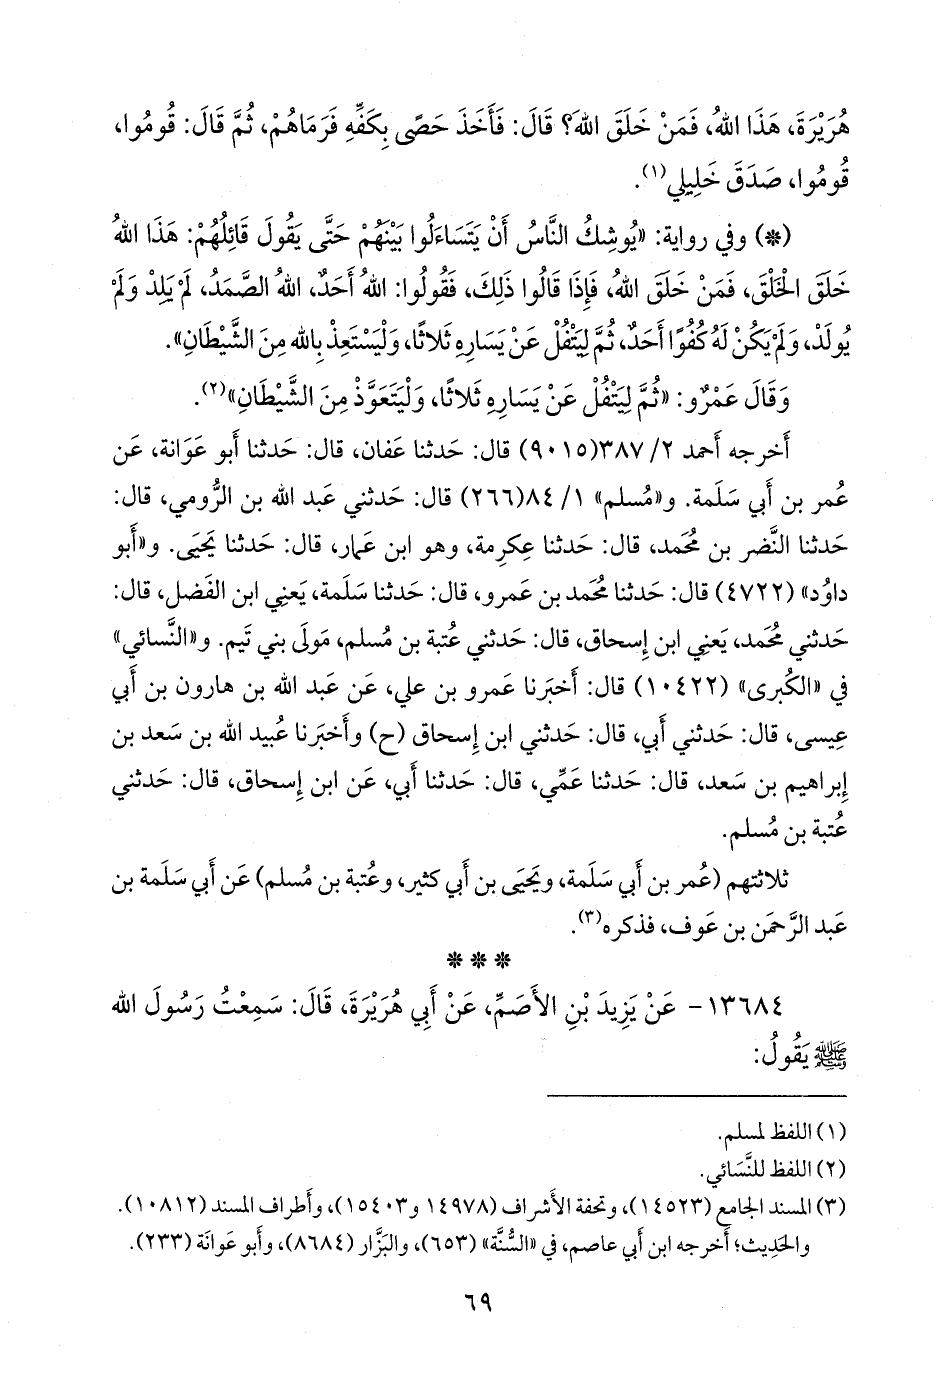 هُرَيْرَةَ، هَذَا اللهُ، فَمَنْ خَلَقَ اللهَ؟ قَالَ: فَأَخَذَ حَصًى بِكَفِّهِ فَرَمَاهُمْ، ثُمَّ قَالَ: قُومُوا،
قُومُوا، صَدَقَ خَلِيلِي(١).
(*) وفي رواية: «يُوشِكُ النَّاسُ أَنْ يَتَسَاءَلُوا بَيْنَهُمْ حَتَّى يَقُولَ قَائِلُهُمْ: هَذَا اللهُ
خَلَقَ الْخَلْقَ، فَمَنْ خَلَقَ اللهُ، فَإِذَا قَالُوا ذَلِكَ، فَقُولُوا: اللهُ أَحَدٌ، اللهُ الصَّمَدُ، لَمْ يَلِدْ وَلَمْ
يُولَدْ، وَلَمْ يَكُنْ لَهُ كُفُوًا أَحَدٌ، ثُمَّ لِيَتْفُلْ عَنْ يَسَارِهِ ثَلَاثًا، وَلْيَسْتَعِذْ بِالله مِنَ الشَّيْطَانِ».
وَقَالَ عَمْرٌو: «ثُمَّ لِيَتْفُلْ عَنْ يَسَارِهِ ثَلَاثًا، وَلْيَتَعَوَّذْ مِنَ الشَّيْطَانِ»(٢).
أَخرجه أحمد ٢/ ٣٨٧(٩٠١٥) قال: حَدثنا عَفان، قال: حَدثنا أَبو عَوَانة، عَن
عُمر بن أَبي سَلَمة. و«مُسلم» ١/ ٨٤(٢٦٦) قال: حَدثني عَبد الله بن الرُّومي، قال:
حَدثنا النَّضر بن مُحمد، قال: حَدثنا عِكرمة، وهو ابن عمار، قال: حَدثنا يَحيَى. و«أَبو
داوُد» (٤٧٢٢) قال: حَدثنا مُحمد بن عَمرو، قال: حَدثنا سَلَمة، يَعنِي ابن الفَضل، قال:
حَدثني مُحمد، يَعنِي ابن إِسحاق، قال: حَدثني عُتبة بن مُسلم، مَولَى بني تَيم. و«النَّسائي»
في «الكُبرى» (١٠٤٢٢) قال: أَخبَرنا عَمرو بن علي، عَن عَبد الله بن هارون بن أَبي
عِيسى، قال: حَدثني أَبي، قال: حَدثني ابن إِسحاق (ح) وأَخبَرنا عُبيد الله بن سَعد بن
إِبراهيم بن سَعد، قال: حَدثنا عَمِّي، قال: حَدثنا أَبي، عَن ابن إِسحاق، قال: حَدثني
عُتبة بن مُسلم.
ثلاثتهم (عُمر بن أَبي سَلَمة، ويَحيَى بن أَبي كثير، وعُتبة بن مُسلم) عَن أَبي سَلَمة بن
عَبد الرَّحمَن بن عَوف، فذكره(٣).
* * *
١٣٦٨٤- عَنْ يَزِيدَ بْنِ الأَصَمِّ، عَنْ أَبِي هُرَيْرَةَ، قَالَ: سَمِعْتُ رَسُولَ الله
ﷺ يَقُولُ:
(١) اللفظ لمسلم.
(٢) اللفظ للنَّسَائي.
(٣) المسند الجامع (١٤٥٢٣)، وتحفة الأشراف (١٤٩٧٨ و١٥٤٠٣)، وأطراف المسند (١٠٨١٢).
والحَدِيث؛ أَخرجه ابن أَبي عاصم، في «السُّنَّة» (٦٥٣)، والبَزَّار (٨٦٨٤)، وأَبو عَوانَة (٢٣٣).
٦٩